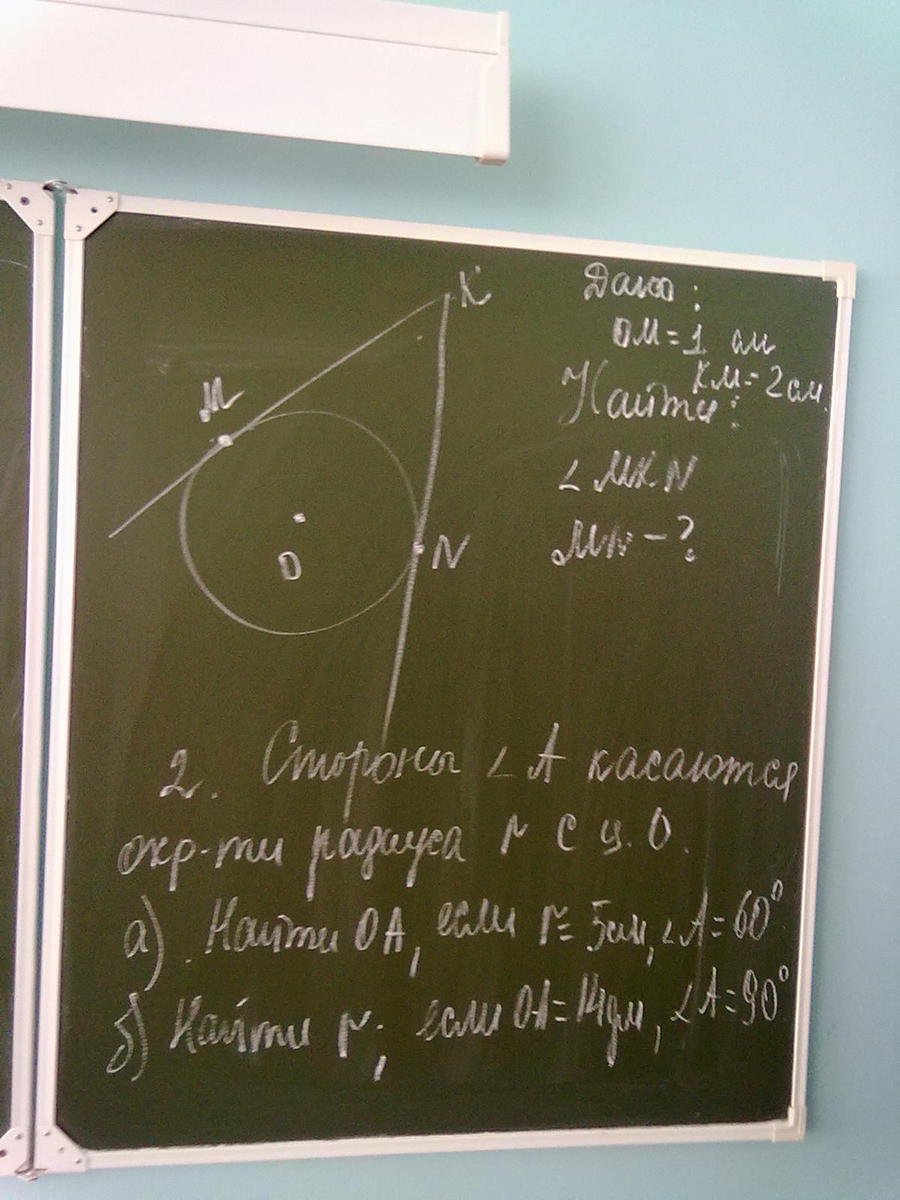 K
Дано:
OM = 1 см
KM = 2 см.
Найти:
∠ MKN
MN - ?
M
O
N
2. Стороны ∠ A касаются
окр-ти радиуса r с ц. O.
а) Найти OA, если r = 5см, ∠A = 60°
б) Найти r, если OA = 14дм, ∠A = 90°